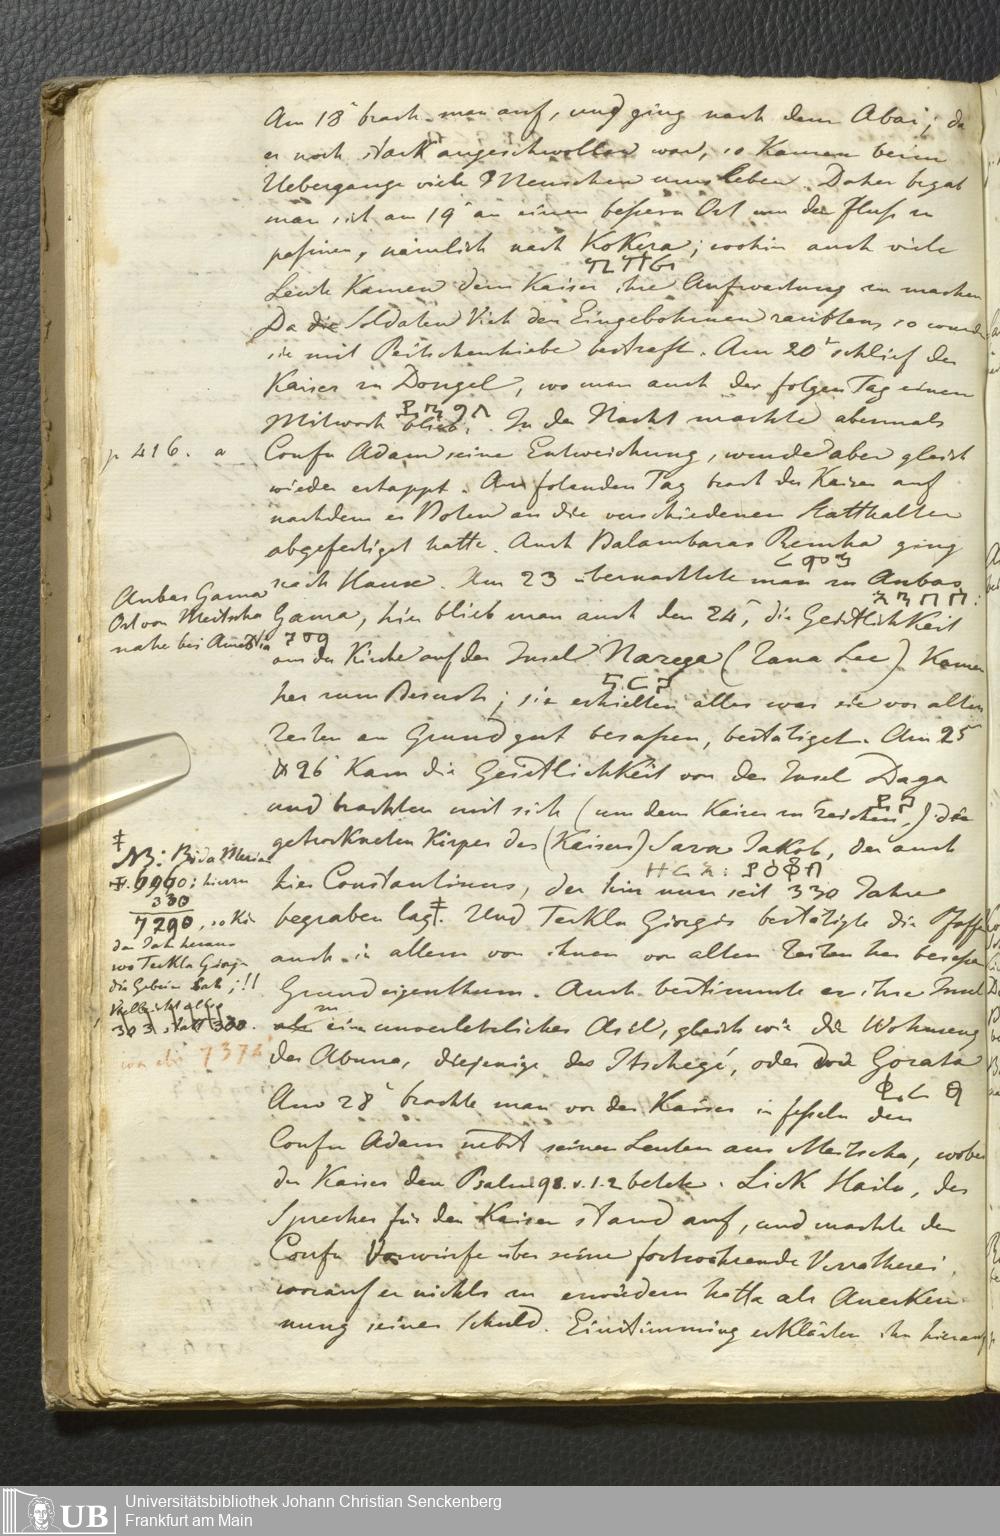 Am 18 brach man auf, und ging nach dem Abai; da
er noch stark angeschwollen war, so Kamen beim
Uebergange viele Menschen ums Leben. Daher begab
man sich am 19 an einen bessern Ort um den Fluss zu
passiren, nämlich nach KoKera; wohin auch viele
Leute Kamen dem Kaiser ihre Aufwartung zu machen
Da die Soldaten Vieh den Eingebohrnen raubten, so wurden
sie mit Peitschenhiebe bestraft. Am 20 schlief der
Kaiser zu Dongel, wo man auch der folgen Tag einen
Mitwoch blieb. In der Nacht machte abermals
p 416. a
Confu Adam seine Entweichung, wurde aber gleich
wieder ertappt. Am folgenden Tag brach der Kaiser auf
nachdem er Boten an die verschiedenen Statthalter
abgefertiget hatte. Auch Balambaras Remha ging
nach Hause. Am 23 übernachtete man zu Anbas
Gama, hier blieb man auch den 24, die GeistlichKeit
Anbas Gama
Ort von Meitscha
nahe bei
aus der Kirche auf der Insel Narega (Zana See) Kamen
her zum Besuch; sie erhielten alles was sie vor alten
Zeiten an Grundgut besassen, bestätiget. Am 25
& 26 Kam die GeistlichKeit von der Insel Daga
und brachten mit sich (um dem Kaiser zu zeichen,) die
getrockneten Körper des (Kaisers) Sara JaKob, der auch
hies Constantinus, der hier nun seit 330 Jahre
begraben lag ‡. Und TecKla Giorgis bestätigte die Pfaffen
auch in allem von ihnen vor alten Zeiten her besessne
Grundeigenthum. Auch bestimmte er ihre Insel
zu ein unverletzliches Asil, gleich wie die Wohnung
des Abuna, diejenige des Itschegé, oder von Gorata
‡
NB:
6960; hierzu
330
7290, so
das Jahr heraus
wo TecKla Giorgis
die Gebein sah;!!
Vielleicht
303 statt 330.
7372
Am 28 brachte man vor den Kaiser in fesseln den
Confu Adam nebst seinen Leuten aus Meitscha, wobei
der Kaiser den Psalm 98. v. 1.2 betete. LicK Hailu, der
Sprecher für den Kaiser stand auf, und machte den
Confu Vorwürfe über seine fortwährende Verrätherei,
worauf er nichts zu erwiedern hatte als AnerKen
nung seiner Schuld. Einstimmig erKlärten ihn hierauf
Universitätsbibliothek Johann Christian Senckenberg
Frankfurt am Main
UB